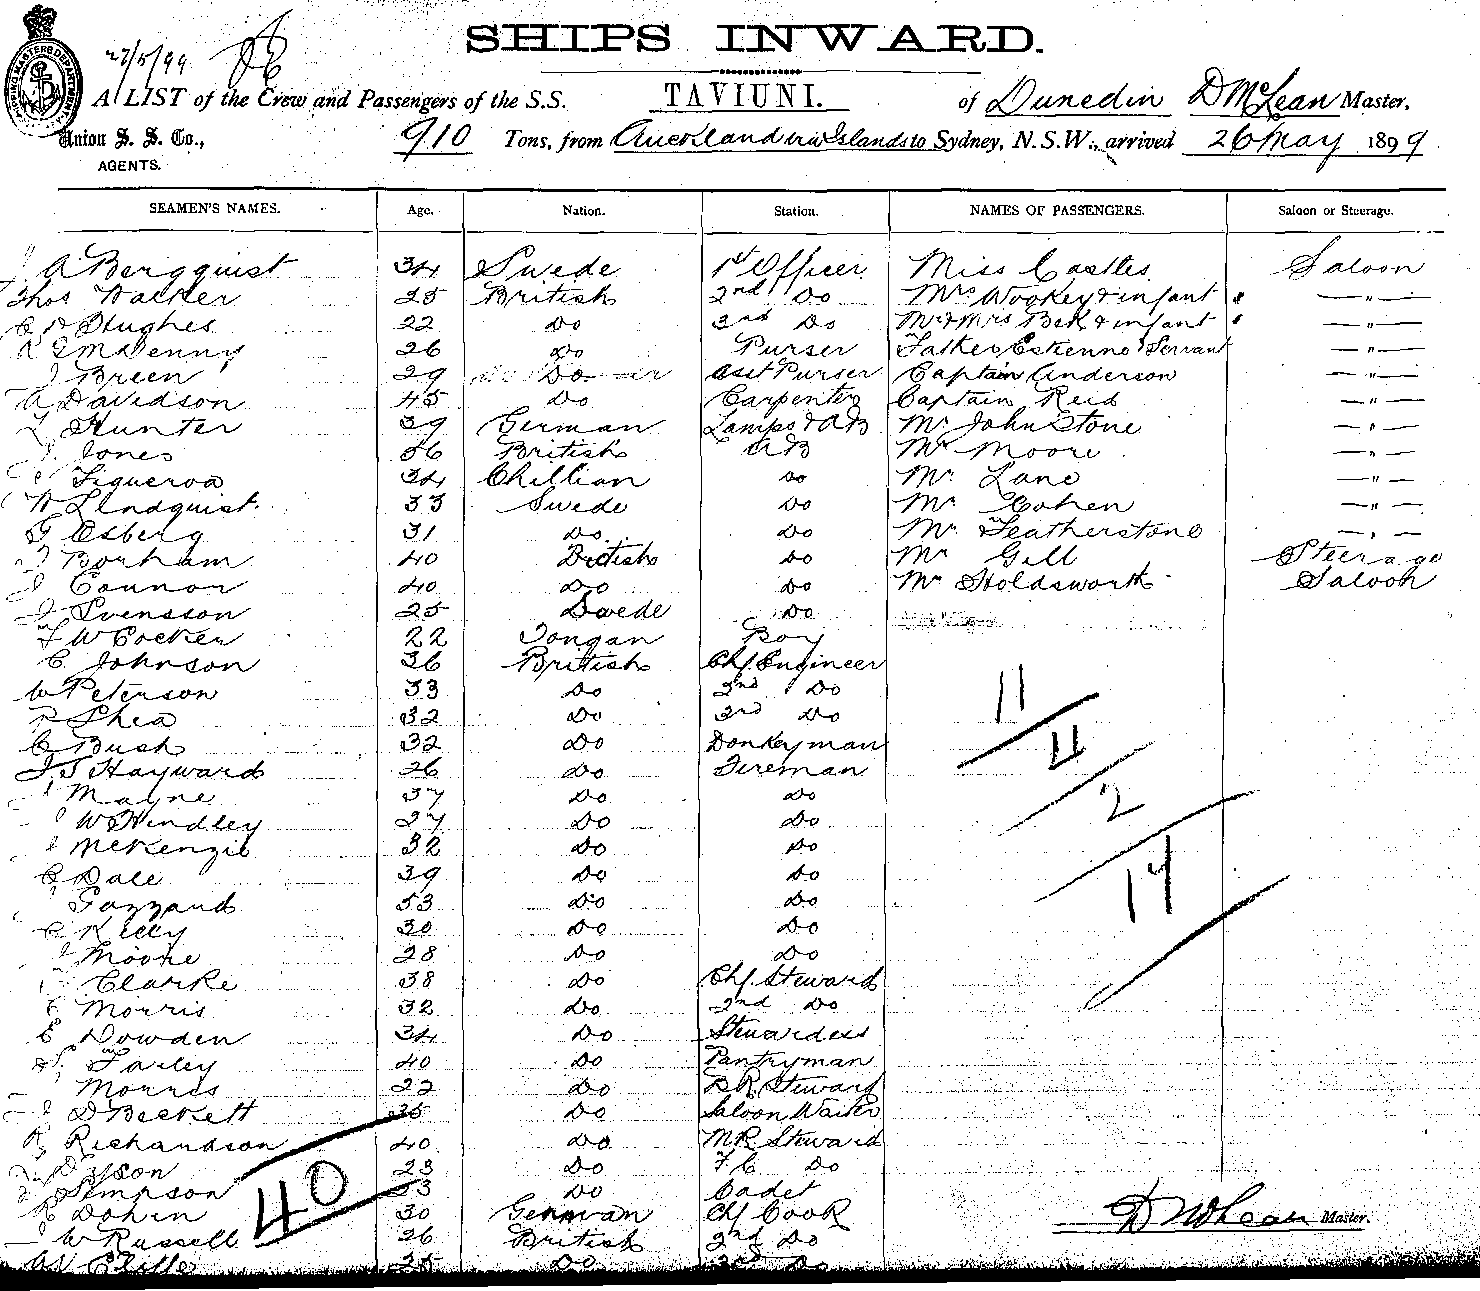 SHIPS INWARD.
27/5/99
A LIST of the Crew and Passengers of the S.S. TAVIUNI. of Dunedin D McLean Master,
Union S. S. Co., AGENTS. 910 Tons, from Auckland via Islands to Sydney, N.S.W., arrived 26 May 1899
SEAMEN'S NAMES. Age. Nation. Station. NAMES OF PASSENGERS. Saloon or Steerage.
A Bergquist 34 Swede 1st Officer Miss Castles Saloon
Thos Walker 25 British 2nd Do Mrs Wookey & infant — " —
Hughes 22 Do 3rd Do Mr & Mrs Bek & infant — " —
26 Do Purser Father & Servant — " —
J Breen 29 Do Asst Purser Captain Anderson — " —
A Davidson 45 Do Carpenter Captain Reid — " —
Hunter 39 German Lamps & AB Mr Johnstone — " —
Jones 56 British AB Mr Moore — " —
Figueroa 34 Chillian Do Mr Lane — " —
Lindquist 33 Swede Do Mr Cohen — " —
G Esberg 31 Do Do Mr Featherstone — " —
Borham 40 British Do Mr Gill Steerage
J Connor 40 Do Do Mr Holdsworth Saloon
J Svensson 25 Swede Do
W Cocker 22 Tongan Boy
C Johnson 36 British Chf. Engineer
W Peterson 33 Do 2nd Do
Shea 32 Do 3rd Do
C Bush 32 Do Donkeyman
J S Hayward 26 Do Fireman
Mayne 37 Do Do
W Hindley 27 Do Do
McKenzie 32 Do Do
C Dale 39 Do Do
Gazzard 53 Do Do
C Kelly 30 Do Do
J Moore 28 Do Do
Clarke 38 Do Chf. Steward
Morris 32 Do 2nd Do
E Dowden 34 Do Stewardess
Farley 40 Do Pantryman
Morris 22 Do Steward
D Beckett 35 Do Saloon Waiter
Richardson 40 Do Steward
Dyson 23 Do F C Do
Simpson 33 Do Cadet
30 German Chf Cook
W Russell 26 British 2nd Do
25 Do 3rd Do
11
11
2
17
40
D McLean Master.